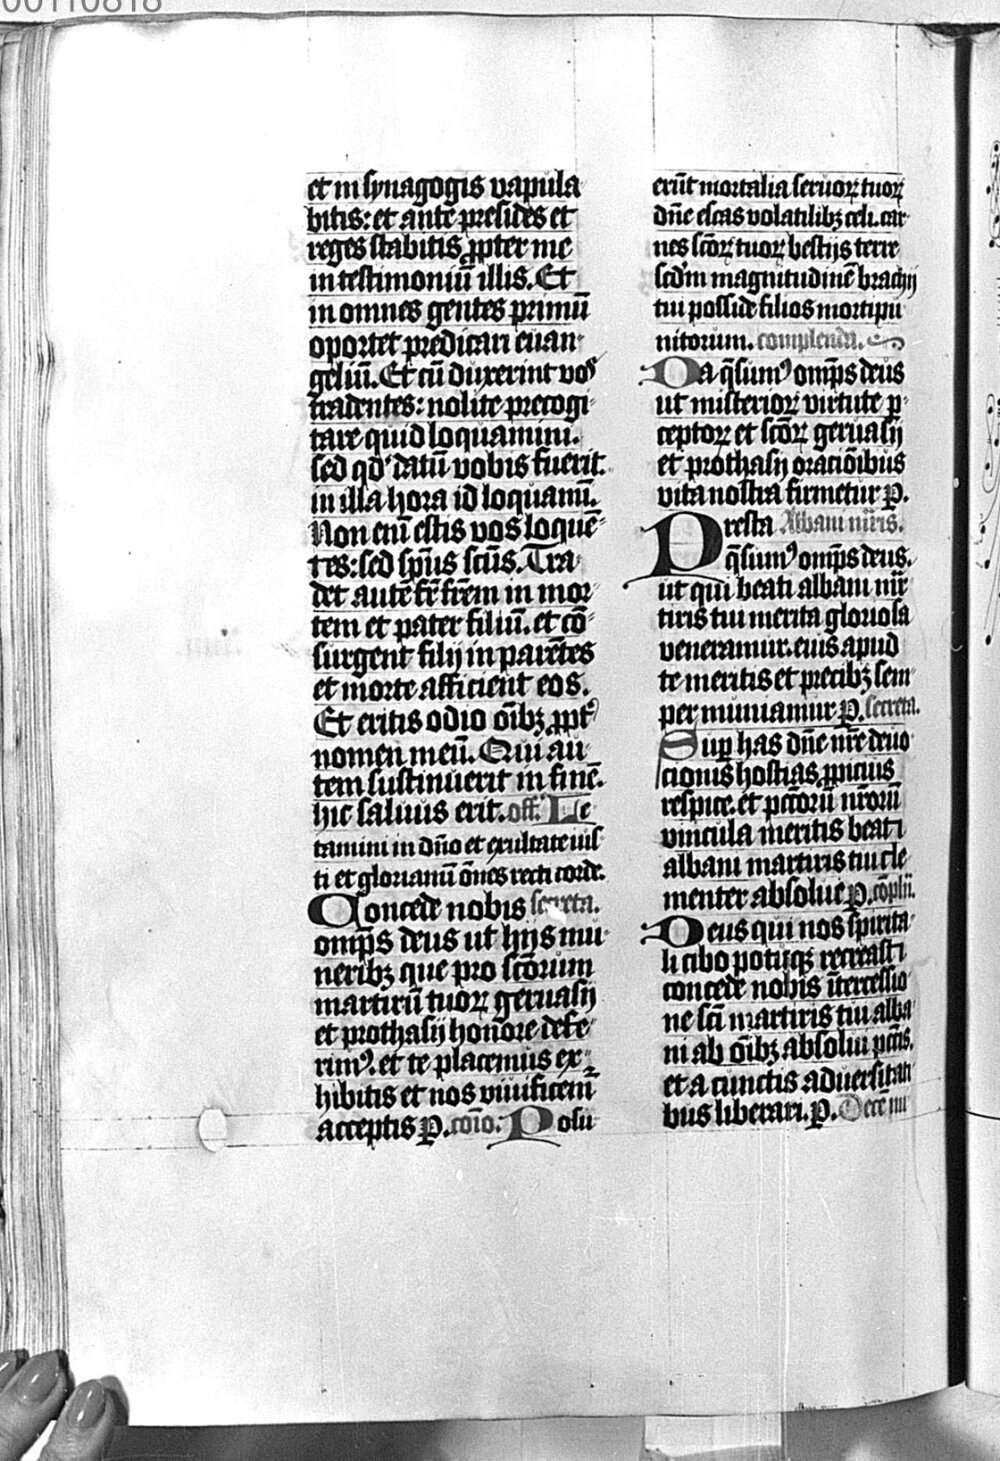 00110818
et in synagogis vapula
bitis: et ante presides et
reges stabitis ꝓpter me
in testimoniū illis. Et
in omnes gentes primū
oportet predicari euan
geliū. Et cū duxerint vos
tradentes: nolite precogi
tare quid loquamini.
sed qd' datū vobis fuerit
in illa hora id loquamī.
Non enī estis vos loquē
tes: sed sp̄us sc̄us. Tra
det autē fr̄ fr̄em in mor
tem et pater filiū. et cō
surgent filij in parētes
et morte afficient eos.
Et eritis odio oībꝫ ꝓpt'
nomen meū. Qui au
tem sustinuerit in finē.
hic saluus erit. off. Le
tamini in dn̄o et exultate ius
ti et gloriamī om̄es recti corde.
Concede nobis secreta.
omp̄s deus ut hijs mu
neribꝫ que pro sc̄orum
martirū tuoꝝ geruasij
et prothasij honore defe
rimꝰ. et te placemus ex
hibitis et nos viuificem̄
acceptis P. cōio. Posu
erūt mortalia seruoꝝ tuoꝝ
dn̄e escas volatilibꝫ celi. car
nes sc̄oꝝ tuoꝝ bestijs terre
sed'm magnitudinē brachij
tui posside filios morti pu
nitorum. complenda.
Da q̄sumꝰ omp̄s deus
ut misterioꝝ virtute ꝑ
ceptoꝝ et sc̄oꝝ geruasij
et prothasij oracōibus
vita nostra firmetur P.
Presta Albani m̄ris.
q̄sumꝰ omp̄s deus.
ut qui beati albani mr̄
tiris tui merita gloriosa
veneramur. eius apud
te meritis et precibꝫ sem
per muniamur P. secreta.
Sup has dn̄e nr̄e deuo
cionis hostias ꝓpicius
respice. et pcc̄orū nr̄orū
vincula meritis beati
albani martiris tui cle
menter absolue P. cōpln̄.
Deus qui nos spirita
li cibo potuqꝫ recreasti
concede nobis ītercessio
ne sc̄i martiris tui alba
ni ab oībꝫ absolui pcc̄is.
et a cunctis aduersitati
bus liberari. P.